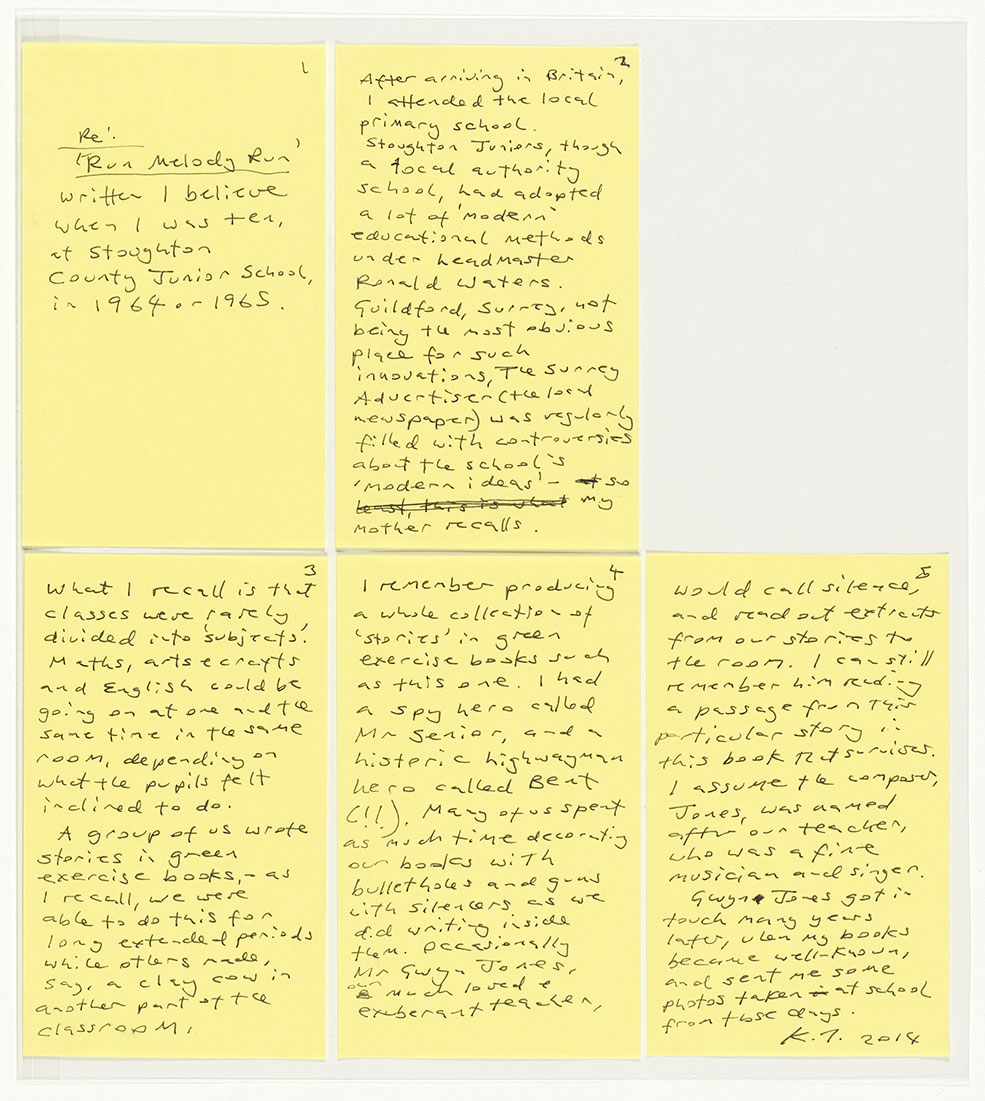 1
Re:
'Run Melody Run'
written I believe
when I was ten,
at Stoughton
County Junior School,
in 1964 or 1965.
2
After arriving in Britain,
I attended the local
primary school.
Stoughton Juniors, though
a local authority
school, had adopted
a lot of 'modern'
educational methods
under headmaster
Ronald Waters.
Guildford, Surrey, not
being the most obvious
place for such
innovations, The Surrey
Advertiser (the local
newspaper) was regularly
filled with controversies
about the school's
'modern ideas' - at so
least, this is what my
mother recalls.
3
What I recall is that
classes were rarely
divided into 'subjects'.
Maths, arts & crafts
and English could be
going on at one and the
same time in the same
room, depending on
what the pupils felt
inclined to do.
A group of us wrote
stories in green
exercise books, - as
I recall, we were
able to do this for
long extended periods
while others made,
say, a clay cow in
another part of the
classroom.
4
I remember producing
a whole collection of
'stories' in green
exercise books such
as this one. I had
a spy hero called
Mr Senior, and a
historic highwayman
hero called Bent
(!!). Many of us spent
as much time decorating
our books with
bulletholes and guns
with silencers as we
did writing inside
them. Occasionally
Mr Gwyn Jones,
our much loved &
exuberant teacher,
5
would call silence,
and read out extracts
from our stories to
the room. I can still
remember him reading
a passage from this
particular story in
this book that survives.
I assume the composer,
Jones, was named
after our teacher,
who was a fine
musician and singer.
Gwyn Jones got in
touch many years
later, when my books
became well-known,
and sent me some
photos taken at school
from those days.
K.I. 2014